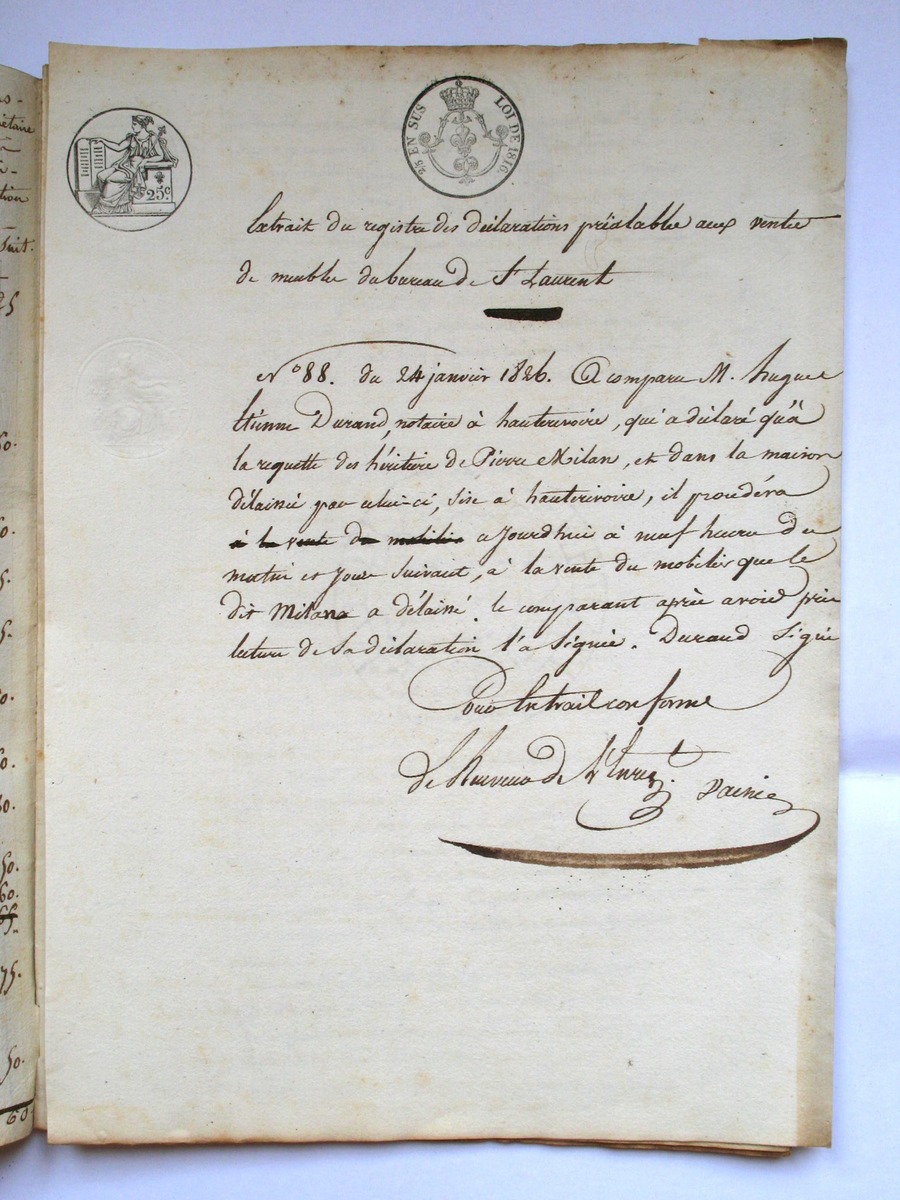 25c.
2/5 EN SUS LOI DE 1816
Extrait du registre des déclarations préalables aux ventes
de meubles du bureau de St Laurent
No 88. du 24 janvier 1826. A comparu M. hugues
Etienne Durand, notaire à hauterivoire, qui a déclaré qu'à
la requette des héritiers de Pierre Milan, et dans la maison
délaissée par celui-ci, sise à hauterivoire, il procédera
à la vente du mobilier aujourdhui à neuf heures du
matin et jours suivants, à la vente du mobilier que le
dit Milan a délaissé. le comparant après avoir pris
lecture de sa déclaration l'a signée. Durand signé
Pour Extrait conforme
Le Receveur de St
ns-
étaire
tion
suit.
25
50.
50.
60.
75.
50.
60